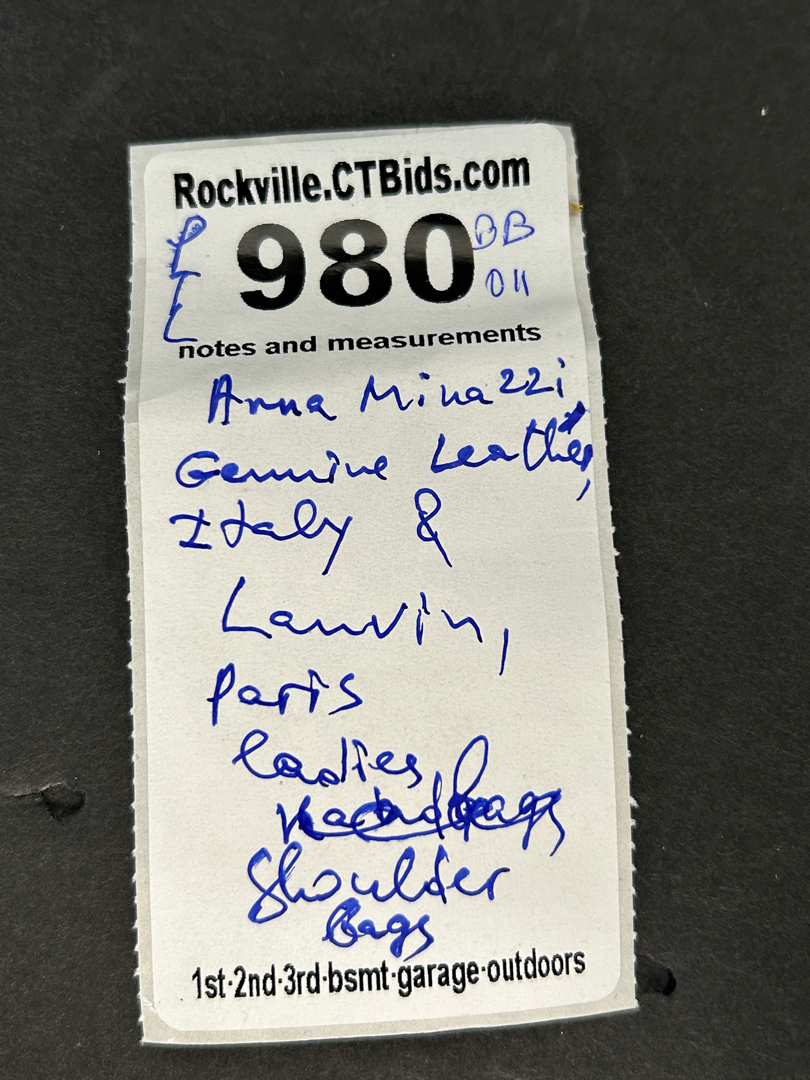 Rockville.CTBids.com
980
BB
011
notes and measurements
Anna Minazzi
Genuine Leather,
Italy &
Lanvin,
Paris
ladies
handbags
Shoulder
Bags
1st·2nd·3rd·bsmt·garage·outdoors